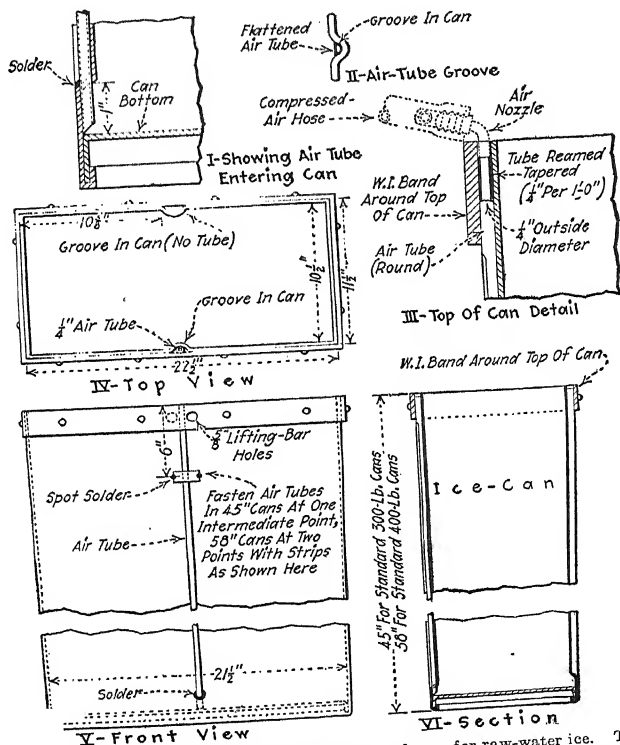 Solder
1"
Can
Bottom
I-Showing Air Tube
Entering Can
Flattened
Air Tube
Groove In Can
II-Air-Tube Groove
Compressed-
Air Hose
Air
Nozzle
W.I. Band
Around Top
Of Can
Tube Reamed
Tapered
(1/4" Per 1'-0")
1/4" Outside
Diameter
Air Tube
(Round)
III-Top Of Can Detail
Groove In Can (No Tube)
10 1/2"
11 1/2"
Groove In Can
1/4" Air Tube
22 1/2"
IV-Top View
6"
5/8" Lifting-Bar
Holes
Spot Solder
Air Tube
Fasten Air Tubes
In 45" Cans At One
Intermediate Point,
58" Cans At Two
Points With Strips
As Shown Here
21 1/2"
Solder
V-Front View
W.I. Band Around Top Of Can
Ice-Can
45" For Standard 300-Lb. Cans
58" For Standard 400-Lb. Cans
VI-Section
for raw-water ice.